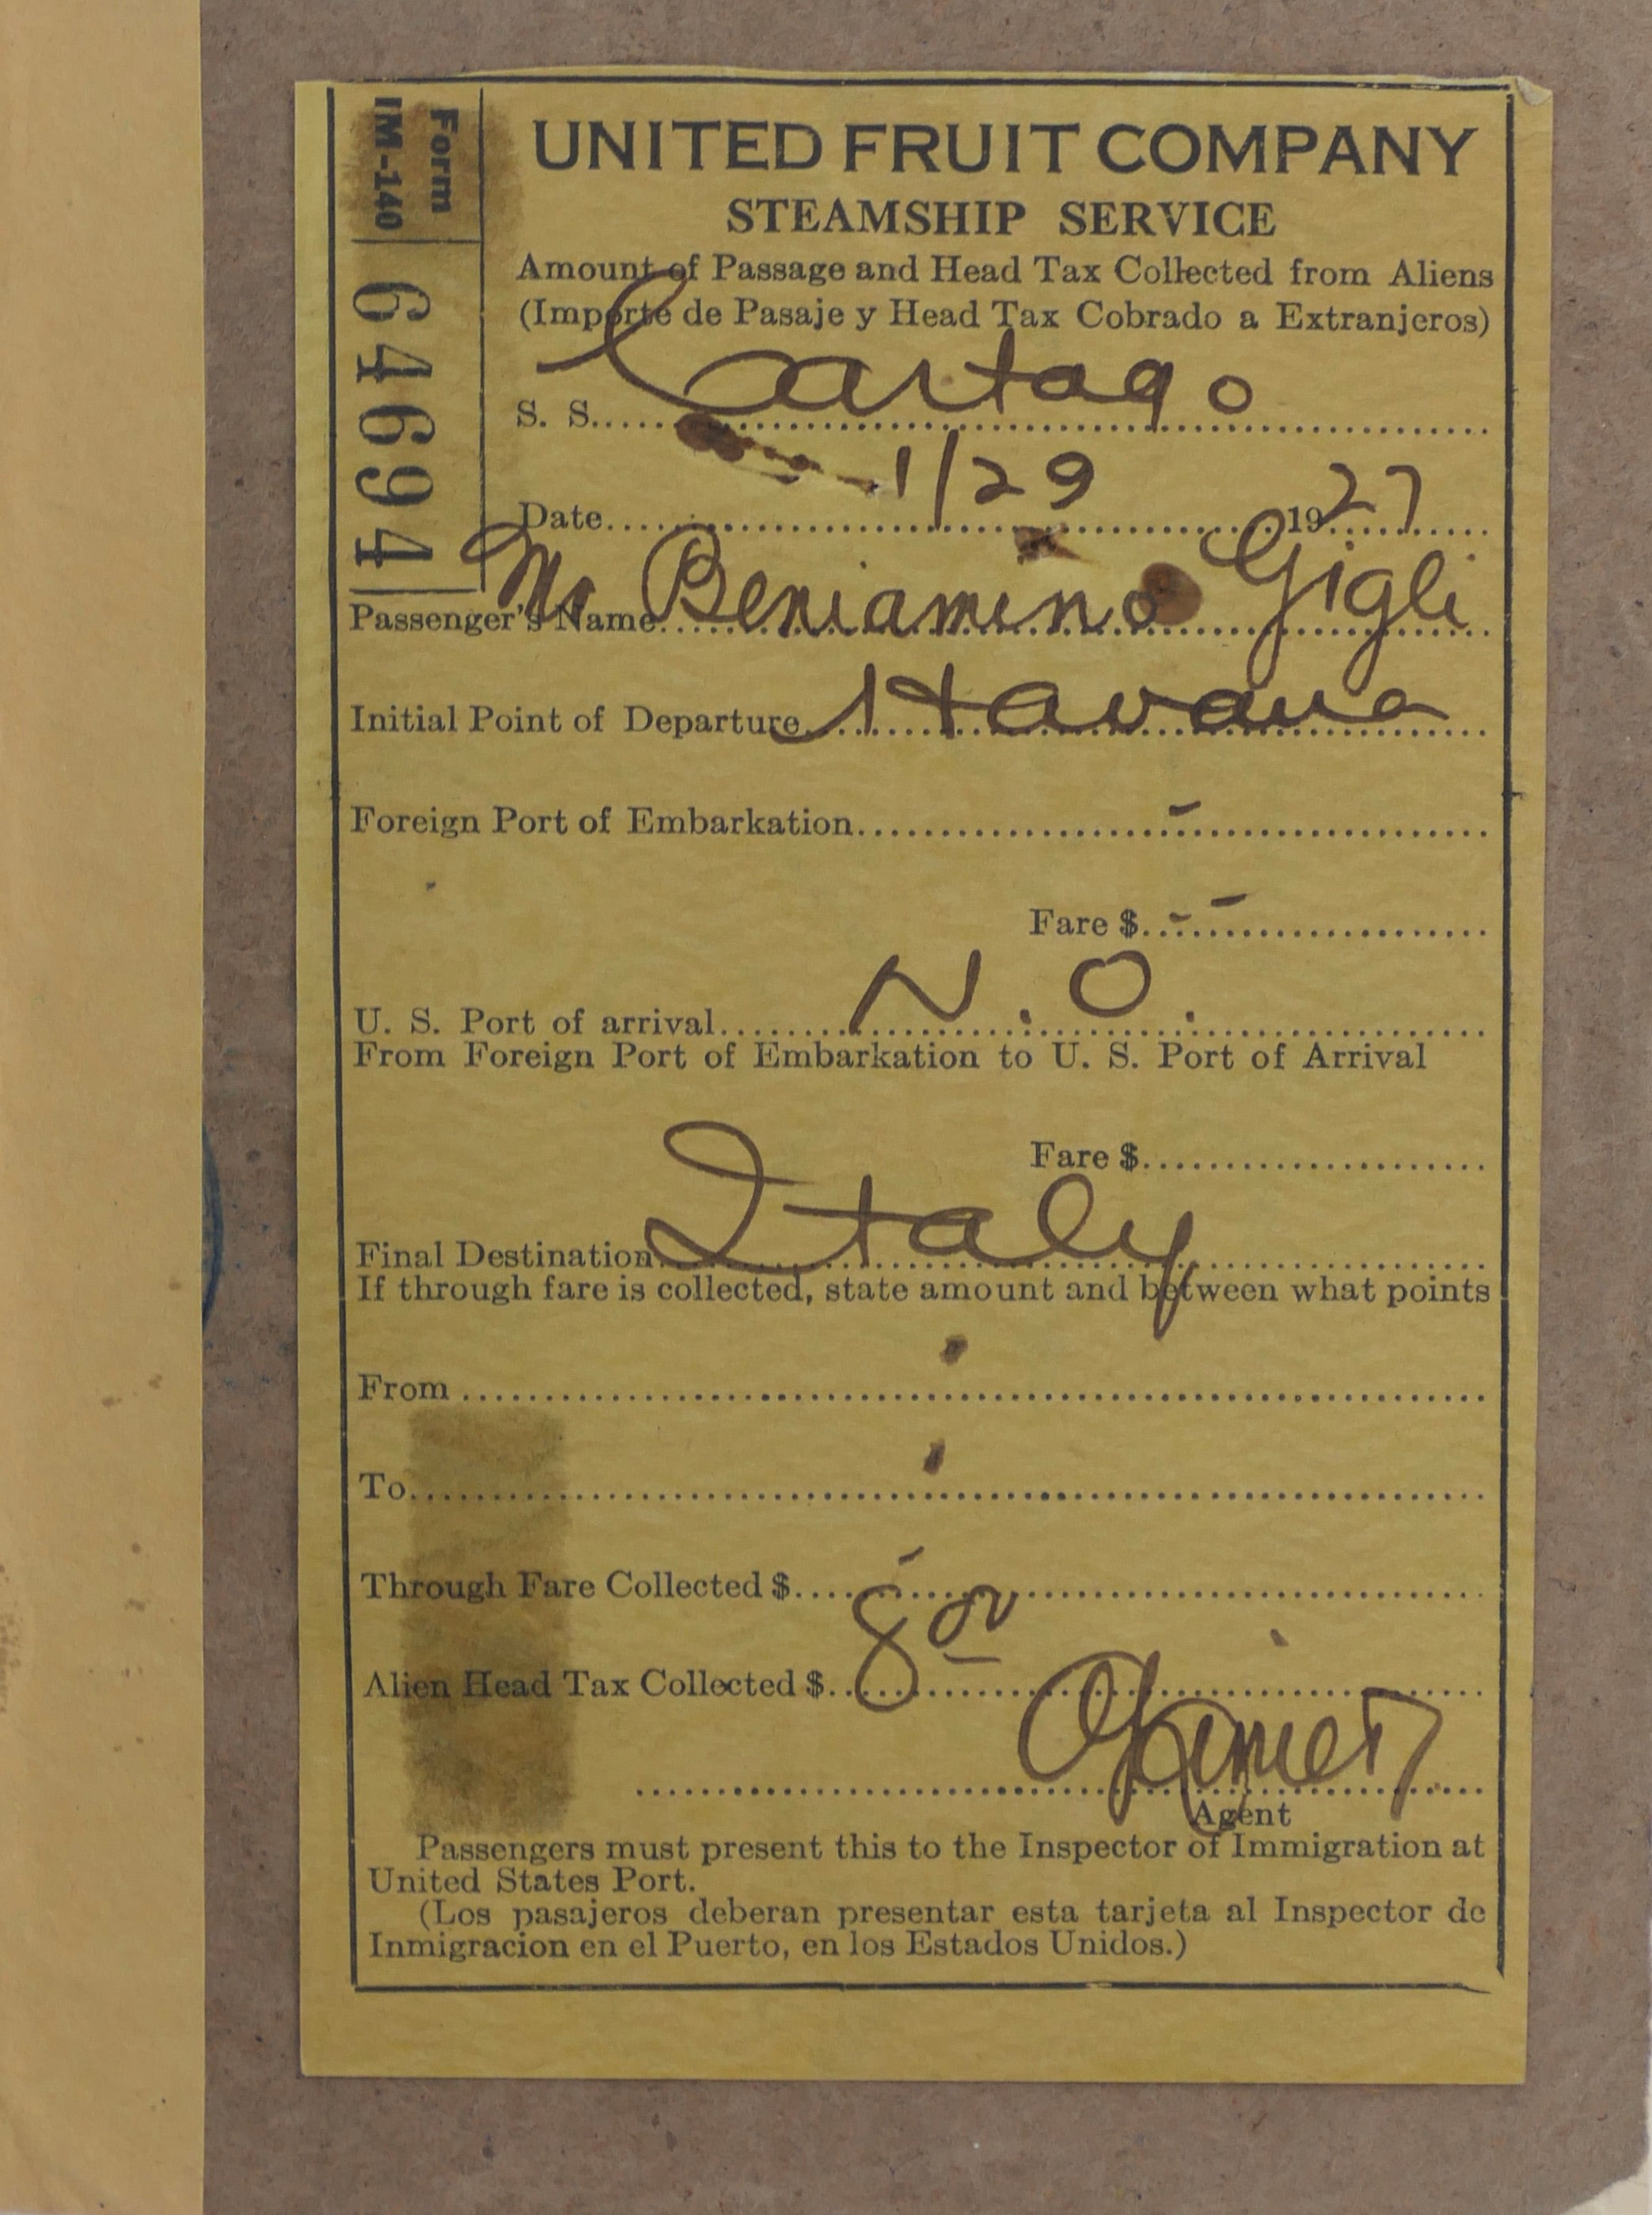 Form
IM-140
64694
UNITED FRUIT COMPANY
STEAMSHIP SERVICE
Amount of Passage and Head Tax Collected from Aliens
(Importe de Pasaje y Head Tax Cobrado a Extranjeros)
S. S. Cartago
Date 1/29 1927
Passenger's Name Mr Beniamino Gigli
Initial Point of Departure Havana
Foreign Port of Embarkation -
Fare $ - -
U. S. Port of arrival N. O.
From Foreign Port of Embarkation to U. S. Port of Arrival
Fare $
Final Destination Italy
If through fare is collected, state amount and between what points
From
To
Through Fare Collected $ -
Alien Head Tax Collected $ 8 00
Agent
Passengers must present this to the Inspector of Immigration at
United States Port.
(Los pasajeros deberan presentar esta tarjeta al Inspector de
Inmigracion en el Puerto, en los Estados Unidos.)